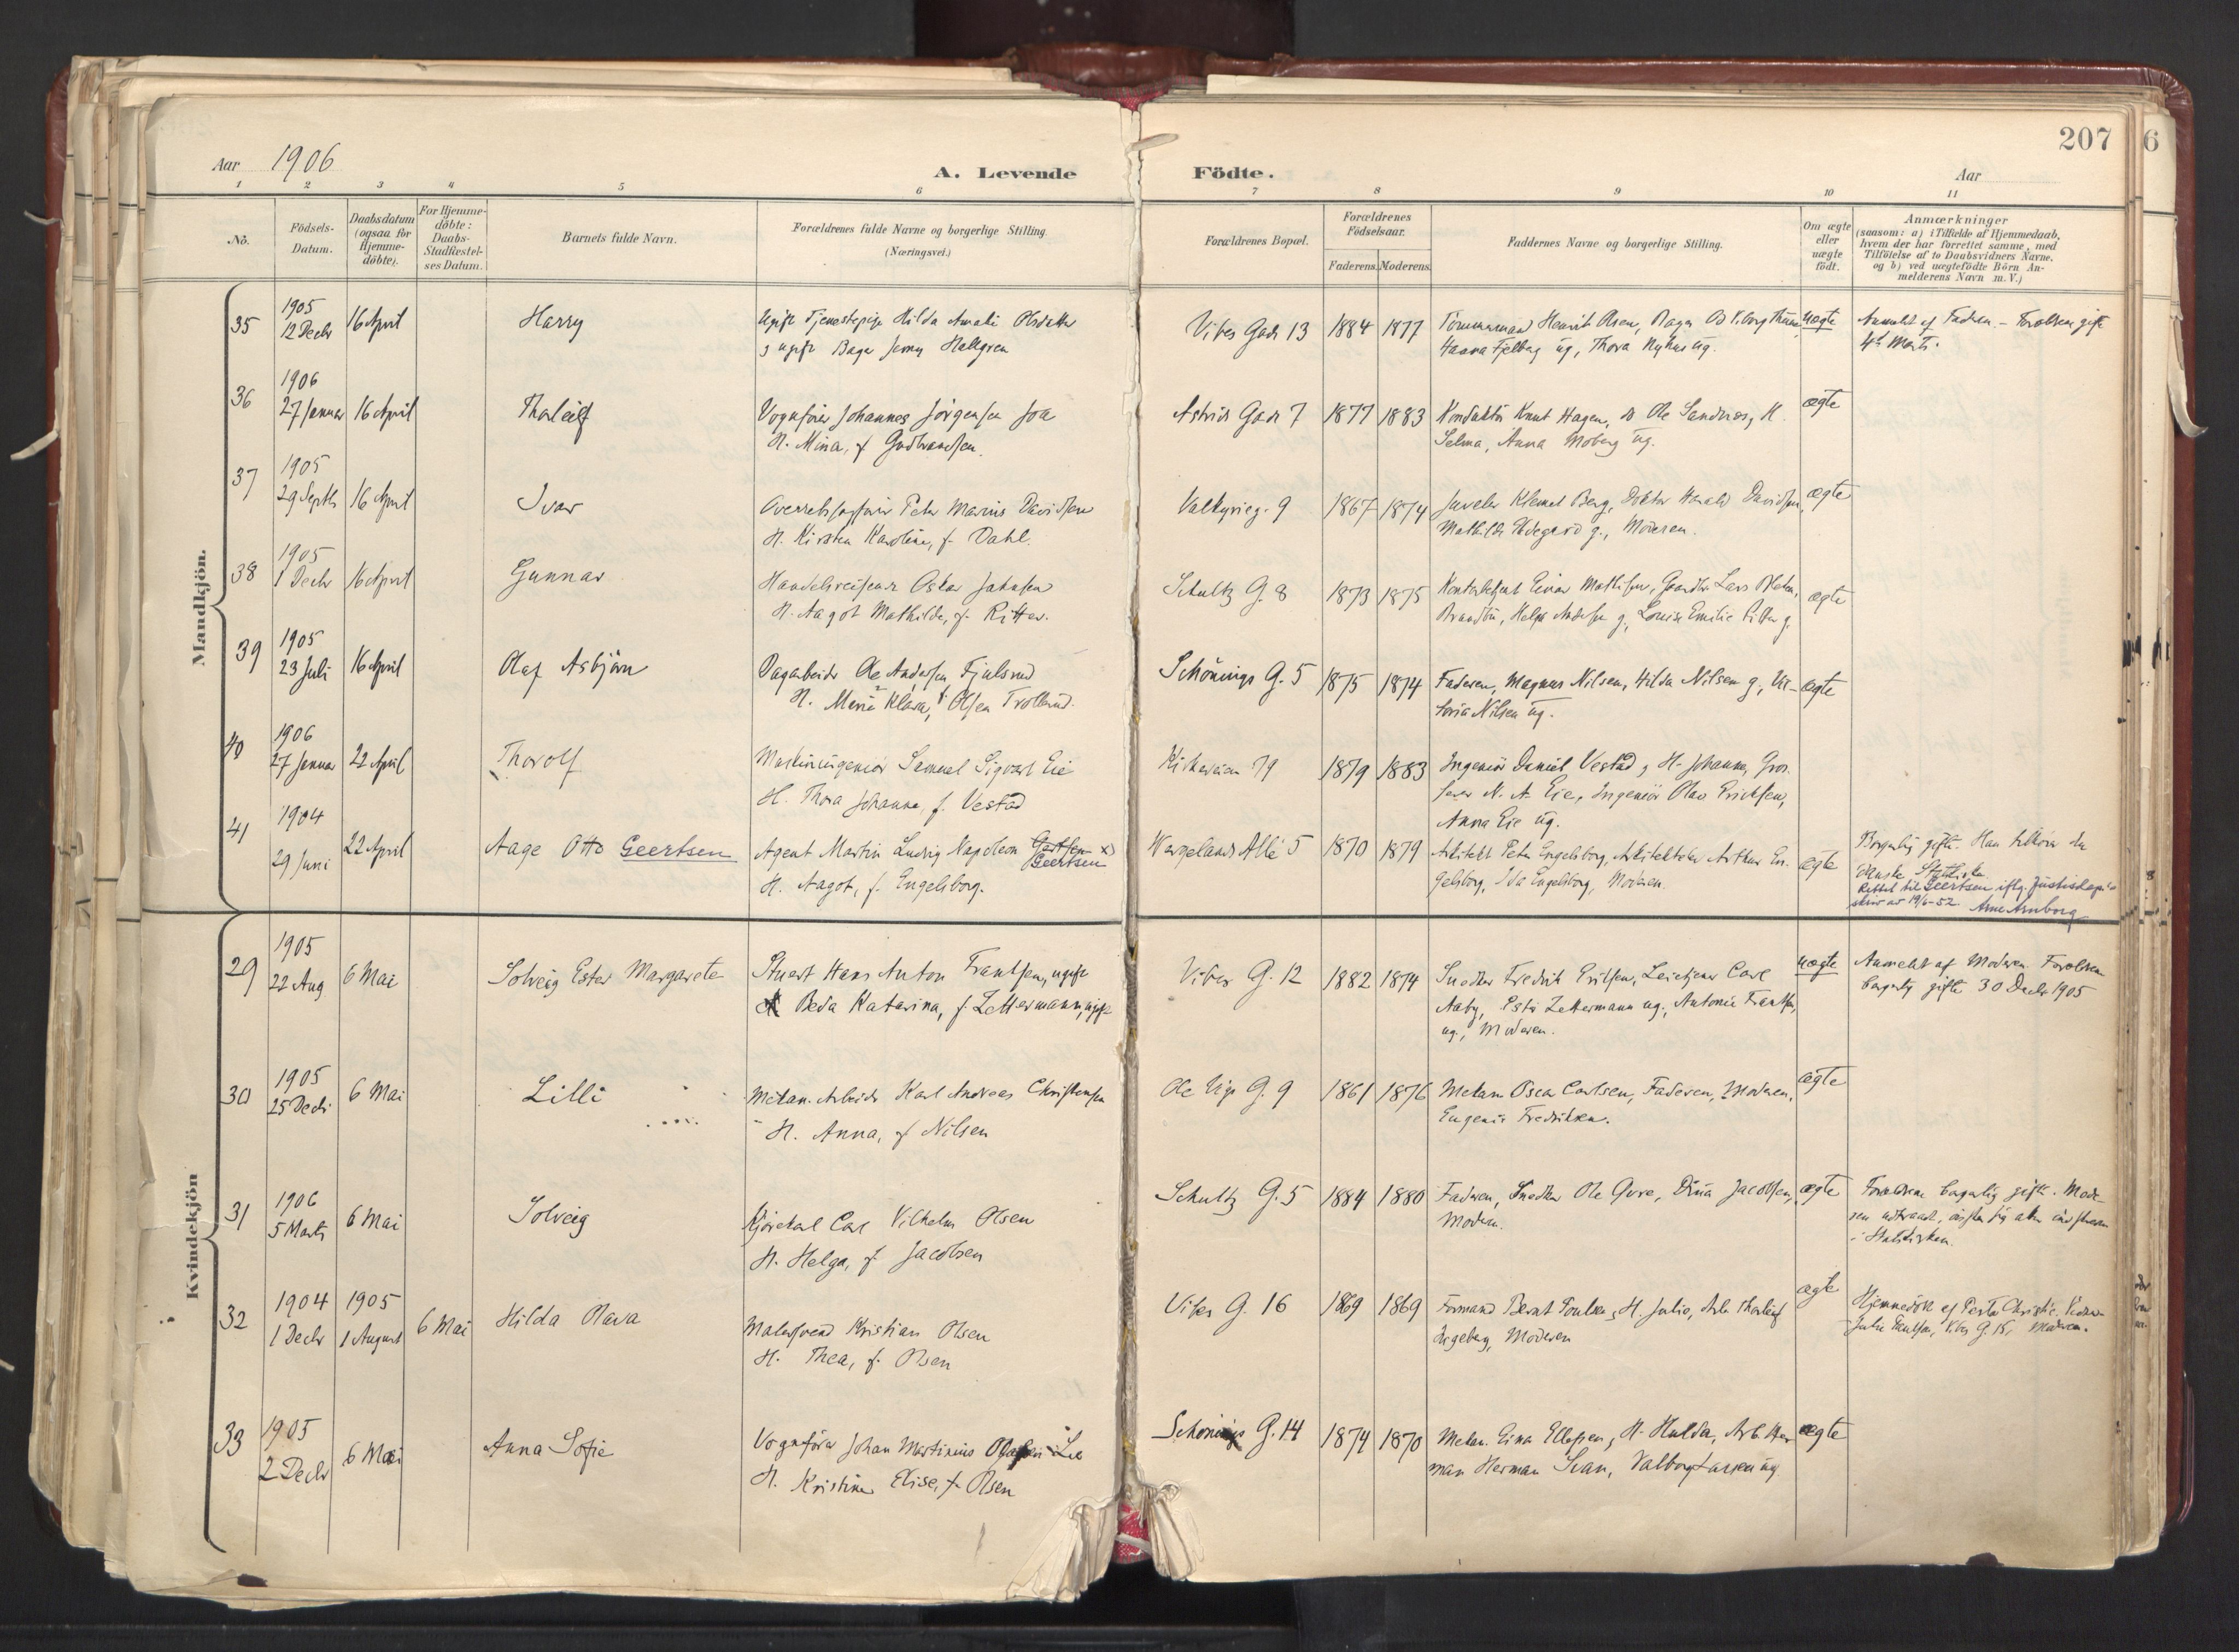 207
6
Aar 1906
A. Levende
Födte.
Aar
1 2 3 4 5 6 7 8 9 10 11
No.
Födsels-
Datum.
Daabsdatum
(ogsaa for
Hjemme-
döbte).
For Hjemme-
döbte:
Daabs-
Stadfæstel-
ses Datum.
Barnets fulde Navn.
Forældrenes fulde Navne og borgerlige Stilling.
(Næringsvei.)
Forældrenes Bopæl.
Forældrenes
Födselsaar.
Faderens. Moderens.
Faddernes Navne og borgerlige Stilling.
Om ægte
eller
uægte
födt.
Anmærkninger
(saasom: a) i Tilfælde af Hjemmedaab,
hvem der har forrettet samme, med
Tilföielse af to Daabsvidners Navne,
og b) ved uægtefödte Börn An-
melderens Navn m. V.)
Mandkjön.
35
1905
12 Decbr 16 April
Harry
Ugift Tjenestepige Hilda Amalie Olsdatter
Hallgren
Vibes Gade 13 1884 1877
Tömmermand Henrik Olsen,
Hanna Fjelberg ug., Thora
uægte
Anmeldt af Faderen. - Forældrene gift
36
1906
27 Januar 16 April
Thorleif
Vognförer Johannes Jörgensen
H. Mina, f. Gudbrandsen.
Astrids Gade 7 1877 1883
Konduktör Knut Hagen, Ole Sandnæs, H.
Selma, Anna Moberg ug.
ægte
37
1905
29 Septb 16 April
Ivar
Peter Marius Davidsen
H. Kirsten Karoline, f. Dahl.
Valkyrieg. 9 1867 1874
Juveler Klemet Berg, Doktor Harald Davidsen,
Mathilde g., Moderen.
ægte
38
1905
1 Decbr 16 April
Gunnar
Handelsreisende Oskar Johnsen
H. Aagot Mathilde, f. Ritter.
Schultz G. 8 1873 1875
Kontorbetjent Einar Mathisen, Lars
Louise Emilie g.
ægte
39
1905
23 Juli 16 April
Olaf Asbjörn
Dagarbeider Ole Andersen Fjulsrud
H. Marie Klara, f. Olsen
Schönings G. 5 1875 1874
Faderen, Magnus Nilsen, Hilda Nilsen g., Vik-
toria Nilsen ug.
ægte
40
1906
27 Januar 22 April
Thorolf
Maskiningeniör Samuel Sigvart Eie
H. Thora Johanne, f. Vestad
Kirkeveien 79 1879 1883
Ingeniör Daniel Vestad, H. Johanna, Gros-
serer N. A. Eie, Ingeniör Olav Erichsen,
Anna Eie ug.
ægte
41
1904
29 Juni 22 April
Aage Otto Geertsen
Agent Martin Ludvig Napoleon Gertsen x)
Geertsen
H. Aagot, f. Engelsborg.
Wergelands Allé 5 1870 1879
Arkitekt Peter Engelsborg, Arthur En-
gelsborg, Ida Engelsborg, Moderen.
ægte
Borgerlig gifte. Han tilhörer den
danske Statskirke
Rettet til Geertsen iflg. Justisdep.s
skriv av 19/6-52. Arne Arnborg
Kvindekjön
29
1905
22 Aug 6 Mai
Solveig Ester Margarete
Stuert Hans Anton Frantsen, ugift
Beda Katarina, f. Zettermann, ugift
Vibes G. 12 1882 1874
Snedker Fredrik Eriksen, Carl
Aaby, Ester Zettermann ug., Antonie Frantsen,
ug., Moderen.
uægte
Anmeldt af Moderen. Forældrene
borgerlig gifte 30 Decbr 1905
30
1905
25 Decbr 6 Mai
Lilli
Mekan. Arbeider Karl Andreas Christensen
H. Anna, f. Nilsen
Ole Vigs G. 9 1861 1876
Mekan Oscar Carlsen, Faderen, Moderen,
Eugenie Fredriksen.
ægte
31
1906
5 Marts 6 Mai
Solveig
Kjörekarl Carl Vilhelm Olsen
H. Helga, f. Jacobsen
Schultz G. 5 1884 1880
Faderen, Snedker Ole Gure, Dina Jacobsen,
Moderen.
ægte
Forældrene borgerlig gifte. Mode-
ren udtraadt, önsker sig atter indskreven
i Statskirken.
32
1904 1905
1 Decbr 1 August 6 Mai
Hilda Olava
Malersvend Kristian Olsen
H. Thea, f. Olsen
Vibes G. 16 1869 1869
Formand Bernt Poulsen, H. Julie, Arb. Thorleif
Ingeberg, Moderen
ægte
Hjemmedöbt af Pastor Christie.
Julie Paulsen, Vibes G. 15, Moderen.
33
1905
2 Decbr 6 Mai
Anna Sofie
Vognförer Johan Martinius
H. Kristine Elise, f. Olsen
Schönings G. 14 1874 1870
Mekan. Einar Ellefsen, H. Hulda, Arb. Her-
man Herman Svan, Valborg Larsen ug.
ægte